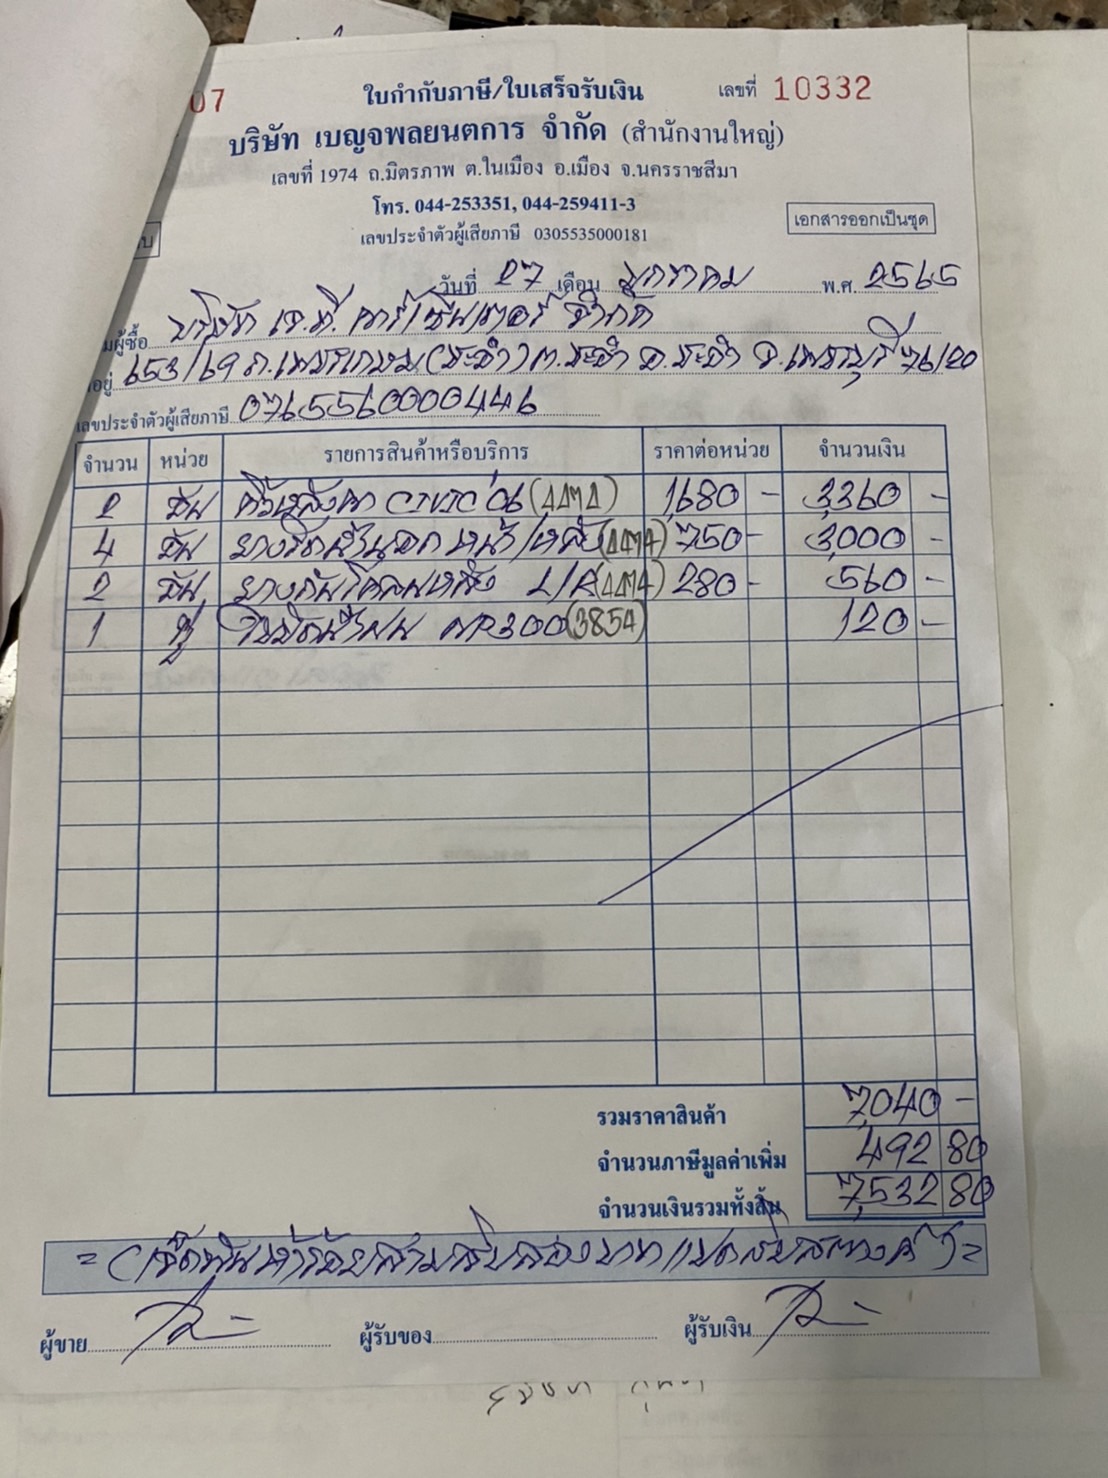 07
ใบกำกับภาษี/ใบเสร็จรับเงิน
เลขที่ 10332
บริษัท เบญจพลยนตการ จำกัด (สำนักงานใหญ่)
เลขที่ 1974 ถ.มิตรภาพ ต.ในเมือง อ.เมือง จ.นครราชสีมา
โทร. 044-253351, 044-259411-3
เลขประจำตัวผู้เสียภาษี 0305535000181
เอกสารออกเป็นชุด
วันที่ 27 เดือน มกราคม พ.ศ. 2565
มผู้ซื้อ บริษัท เจ.ที. คาร์เซ็นเตอร์ จำกัด
อยู่ 653/69 ถ.เพชรเกษม (ชะอำ) ต.ชะอำ อ.ชะอำ จ.เพชรบุรี 76120
เลขประจำตัวผู้เสียภาษี 0765560000446
จำนวน หน่วย รายการสินค้าหรือบริการ ราคาต่อหน่วย จำนวนเงิน
2 อัน คิ้วหลังคา CIVIC'06 1,680 - 3,360 -
4 อัน ยางรีดน้ำนอก หน้า/หลัง 750 - 3,000 -
2 อัน ยางกันโคลนหลัง L/R 280 - 560 -
1 คู่ ใบปัดน้ำฝน (3854) 120 -
รวมราคาสินค้า 7,040 -
จำนวนภาษีมูลค่าเพิ่ม 492 80
จำนวนเงินรวมทั้งสิ้น 7,532 80
= (เจ็ดพันห้าร้อยสามสิบสองบาทแปดสิบสตางค์) =
ผู้ขาย ผู้รับของ ผู้รับเงิน